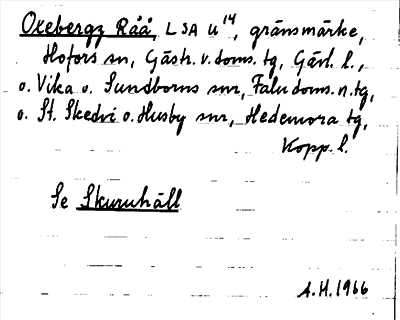 Oxebergz Råå, LSA U¹⁴, gränsmärke,
Hofors sn, Gästr. v. doms. tg, Gävl. l.,
o. Vika o. Sundborns snr, Falu doms. n. tg,
o. St. Skedvi o. Husby snr, Hedemora tg,
Kopp. l.
Se Skuruhäll
A.H. 1966